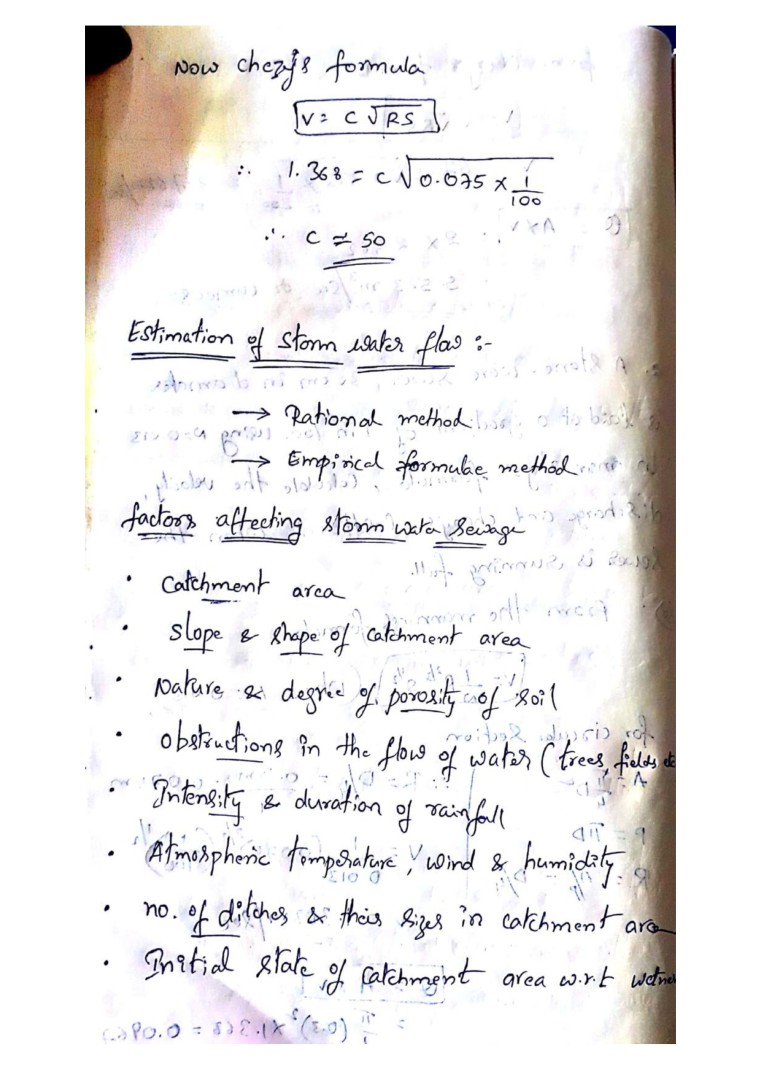 Now chezy's formula
V = C √RS
∴ 1.368 = C √0.075 × 1/100
∴ C ≃ 50
Estimation of storm water flow :-
→ Rational method
→ Empirical formulae method
factors affecting storm water sewage
• Catchment area
• Slope & shape of catchment area
• Nature & degree of porosity of soil
• Obstructions in the flow of water (trees, fields etc
• Intensity & duration of rainfall
• Atmospheric temperature, wind & humidity
• no. of ditches & their sizes in catchment area
• Initial state of catchment area w.r.t